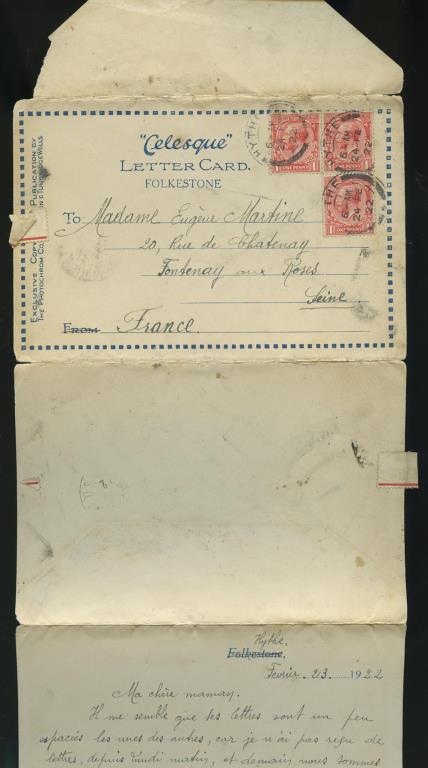 "Celesque"
LETTER CARD.
FOLKESTONE
EXCLUSIVE COPY
THE PHOTOCHROM CO.
PUBLICATION BY
TUNBRIDGE WELLS
HYTHE
24 FE
22
HYTHE
24 FE
22
ONE PENNY
ONE PENNY
ONE PENNY
To Madame Eugène Martine
20, Rue de Chatenay
Fontenay aux Roses
Seine
FROM France.
Hythe,
Folkestone,
Février 23 1922
Ma chère maman,
Il me semble que tes lettres sont un peu
espacées les unes des autres, car je n'ai pas reçu de
lettres, depuis lundi matin, et demain nous sommes